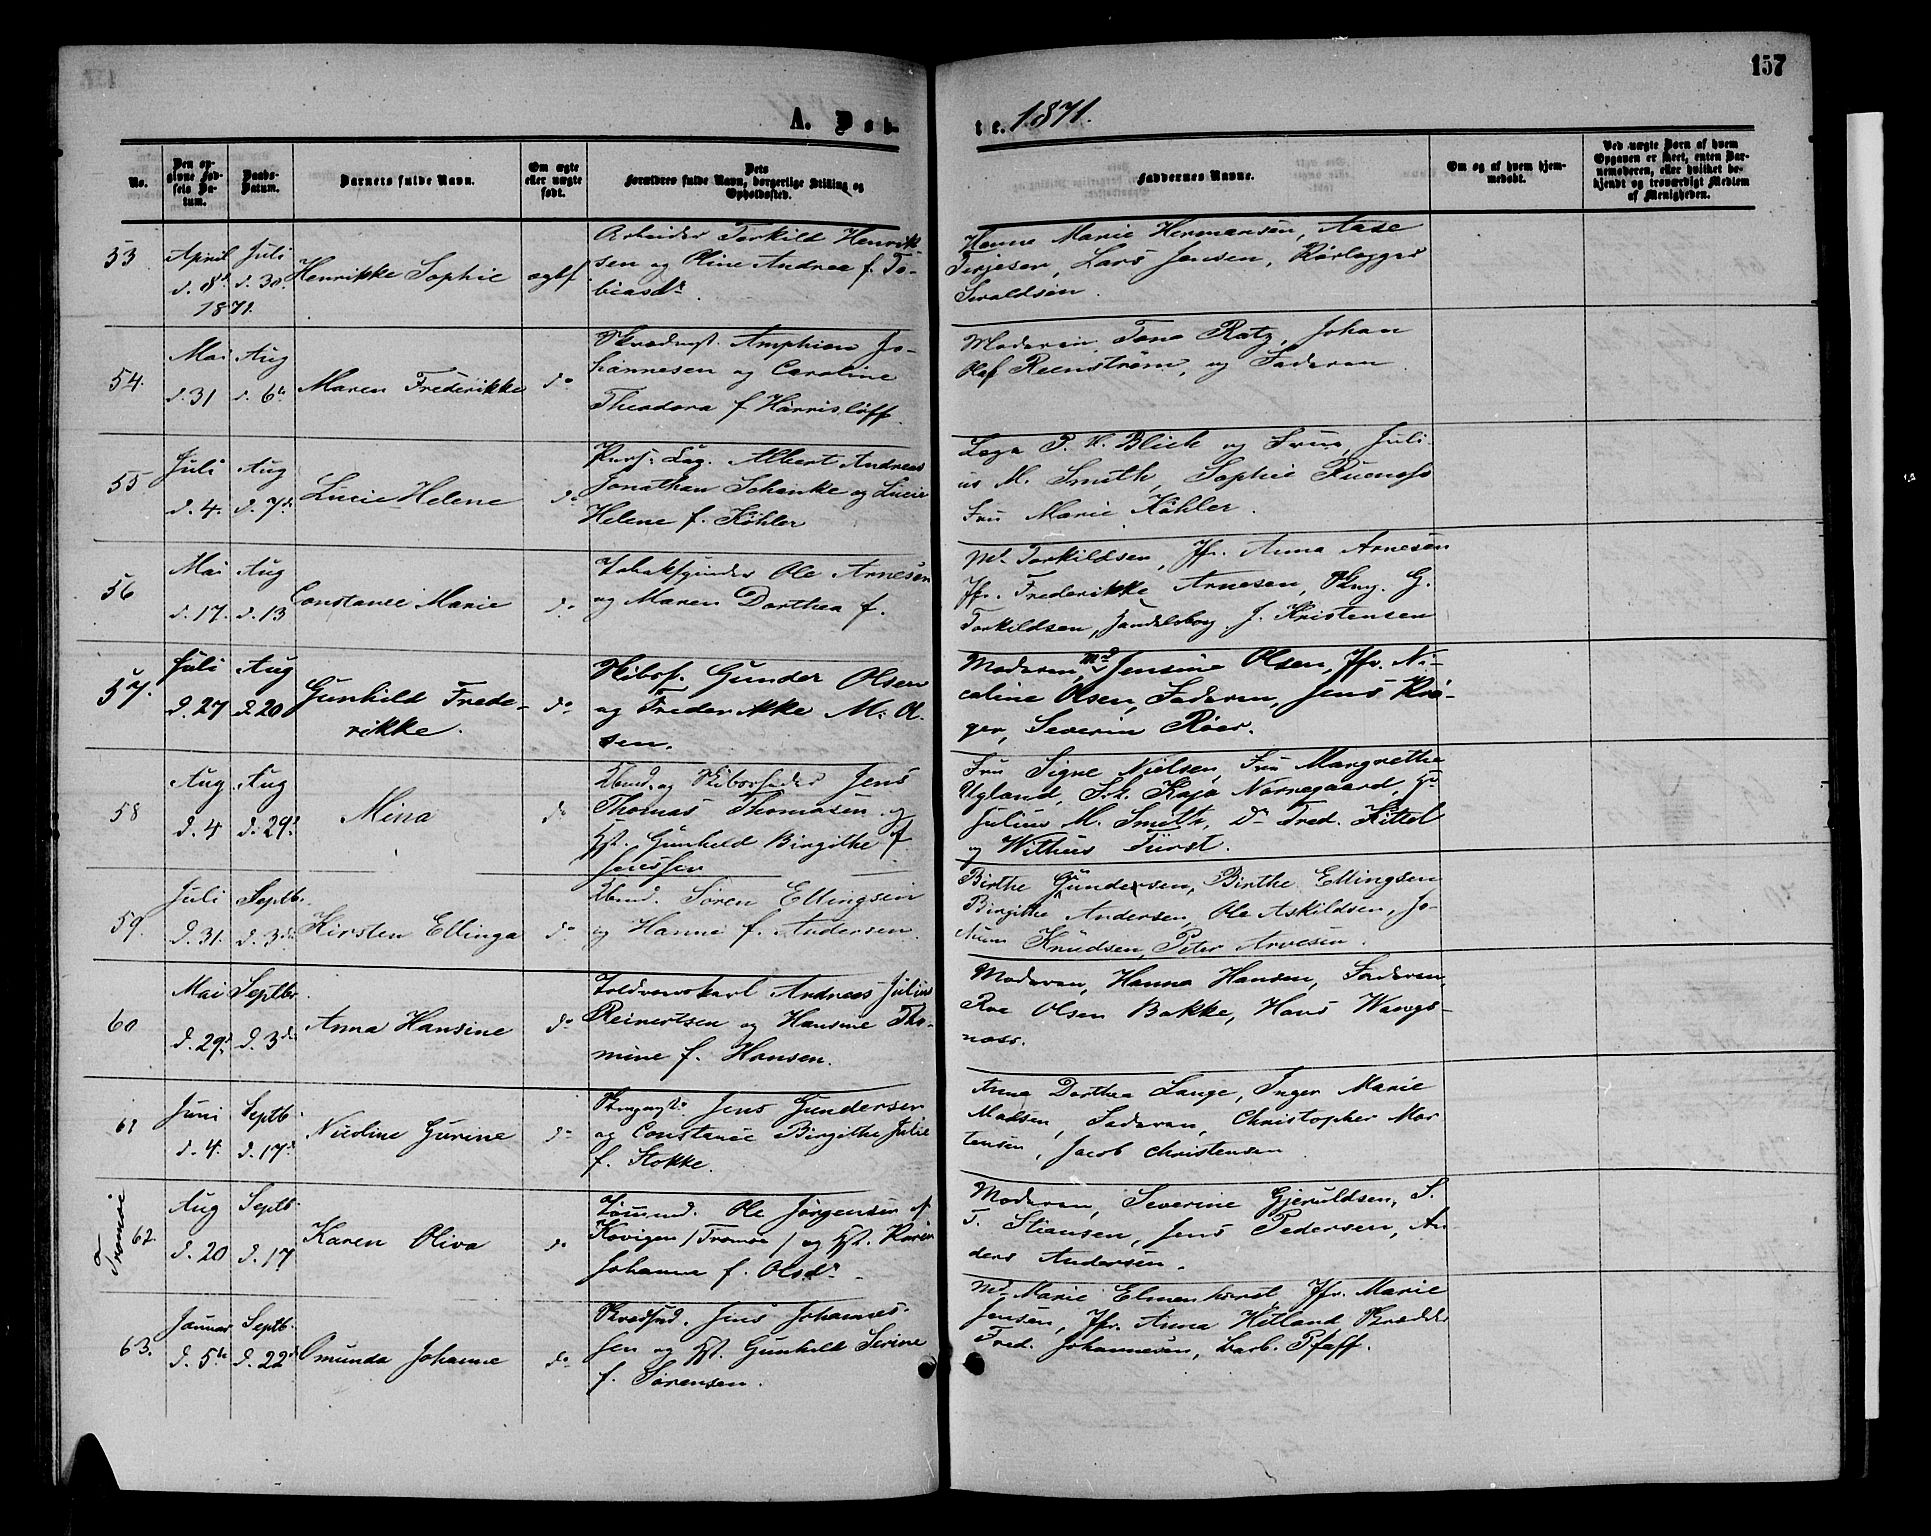 157
A. Døb-
te. 1871.
No.
Den op-
givne Fød-
sels Da-
tum.
Daabs-
Datum.
Barnets fulde Navn.
Om ægte
eller uægte
født.
Dets
Forældres fulde Navn, borgerlige Stilling og
Opholdssted.
Faddernes Navne.
Om og af hvem hjem-
medøbt.
Ved uægte Børn af hvem
Opgaven er skeet, enten Bar-
nemoderen, eller hvilket be-
kjendt og troværdigt Medlem
af Menigheden.
53
April
d. 8de
1871.
Juli
d. 30.
Henrikke Sophie
ægtf
Arbeider Torkild Henrik-
sen og Oline Andrea f. To-
biasdr.
Hanne Marie Hermansen, Aase
Terjesen, Lars Jensen, Rørlægger
Sivaldsen.
54.
Mai
d. 31
Aug
d. 6te
Maren Frederikke
do
Amphion Jo-
hannesen og Caroline
Theodora f Harrisløff.
Moderen, Tona Ratz, Johan
Olaf Reenstrøm, og Faderen.
55.
Juli
d. 4.
Aug
d. 7de
Lucie Helene
do
Albert Andreas
Jonathan Schanke og Lucie
Helene f. Køhler
Læge P. H. Blich og Frue, Juli-
us M. Smith, Sophie Ruenass
Fru Marie Køhler.
56
Mai
d. 17.
Aug
d. 13
Constance Marie
do
Tobakspinder Ole Arnesen
og Maren Dorthea f.
Md. Torkildsen, Jfr. Anna Arnesen
Jfr. Frederikke Arnesen, G.
Torkildsen, Handelsborg. J. Kristensen
57.
Juli
d. 27
Aug
d. 20
Gunhild Frede-
rikke.
do
Skibsf. Gunder Olsen
og Frederikke M. Ol-
sen.
Moderen, Md Jensine Olsen, Jfr. Ni-
coline Olsen, Faderen, Jens Krö-
ger, Severin Röer.
58
Aug
d. 4
Aug
d. 29de
Mina
do
Kbmd. og Skibsrheder Jens
Thomas Thommesen og
Hst. Gunhild Birgithe f
Jenssen
Fru Signe Nielsen, Fru Margrethe
Ugland, Frk. Kaja Nørregaard, Hr
Julius M. Smith, Do Fred. Kittel
og Wilhus Fürst.
59.
Juli
d. 31.
Septb.
d. 3die
Kirsten Ellinga
do
Kbmd. Søren Ellingsen
og Hanne f. Andersen.
Birthe Gundersen, Birthe Ellingsen
Birgithe Andersen, Ole Askildsen, Jo-
Knudsen, Peter Arvesen.
60
Mai
d. 29de
Septbr.
d. 3die
Anna Hansine
do
Toldroerskarl Andreas Julius
Reinertsen og Hansine Tho-
mine f. Hansen.
Moderen, Hanna Hansen, Faderen,
Roe Olsen Bakke, Hans Wangs-
næss.
61
Juni
d. 4.
Septb.
d. 17de
Nicoline Gurine
do
Jens Gundersen
og Constance Birgithe Julie
f. Stokke.
Anna Dorthea Lange, Inger Marie
Madsen, Faderen, Christopher Mor-
tensen, Jacob Christensen
Tromøe
62
Aug
d. 20
Septb.
d. 17
Karen Oliva
do
Tømmd. Ole Jørgensen af
Kovigen (Tromøe) og Hst. Karen
Johanne f. Olsdr.
Moderen, Severine Gjeruldsen, S.
T. Stiansen, Jens Pedersen, An-
ders Andersen.
63.
Januar
d. 5te
Septb.
d. 22de
Omunda Johanne
do
Jens Johannes-
sen og Hst. Gunhild Serine
f. Sørensen.
Md. Marie Elmenhorst, Jfr. Marie
Jensen, Jfr. Anna Hetland, Skrædder
Fred. Johannesen, Barb. Pfaff.